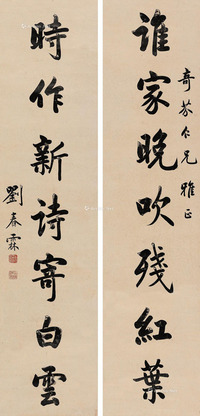 誰家晚吹殘紅葉
奇芬仁兄雅正
時作新詩寄白雲
劉春霖